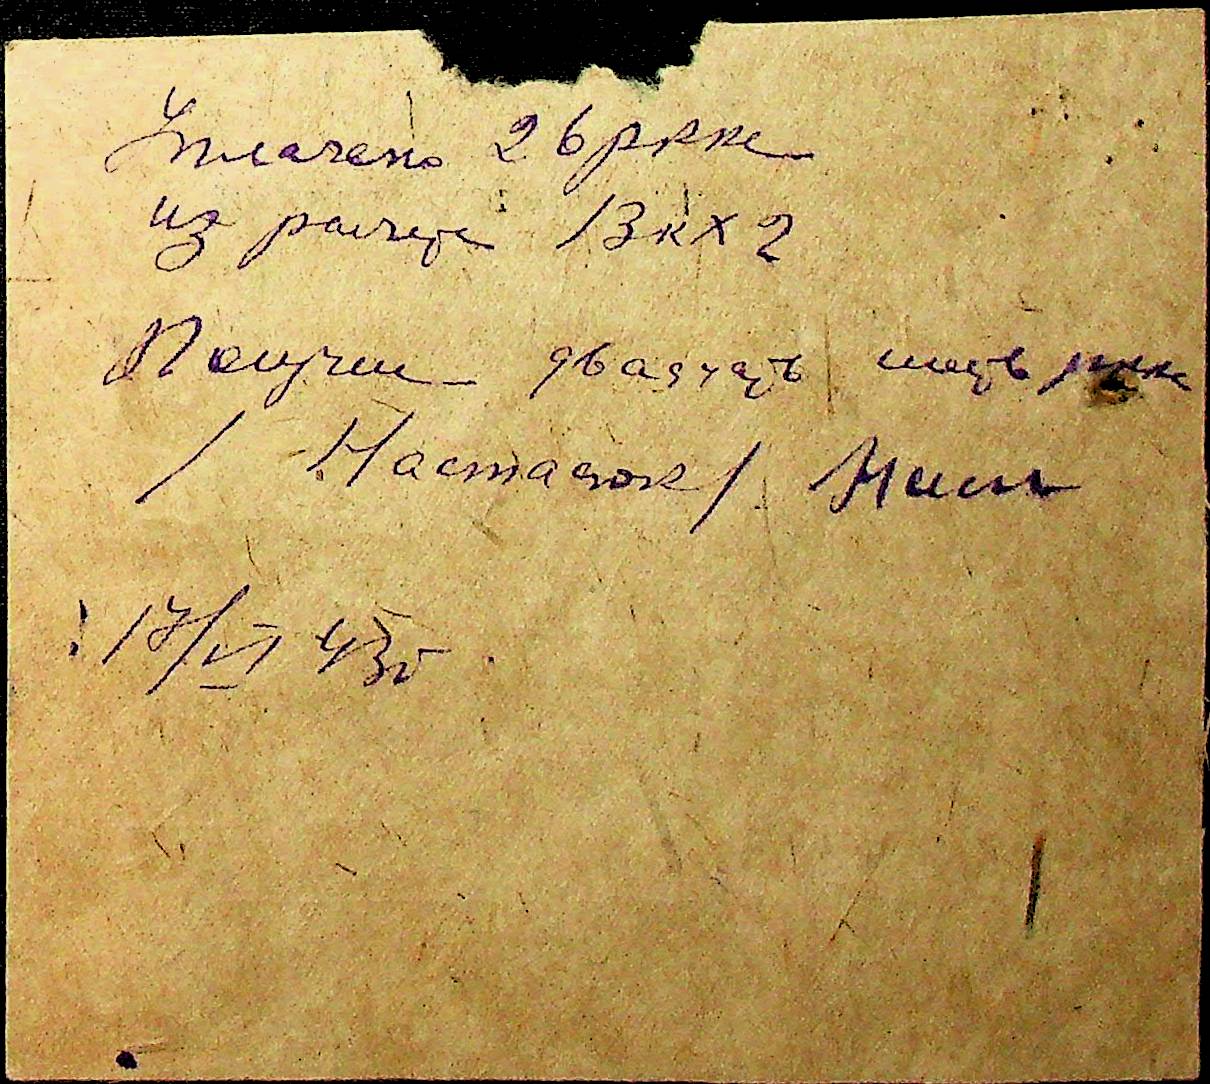 Уплачено 26 ркк
из расчета 13 к х 2
Получил двадцать шесть ркк
/ Настасюк /
17/VI 43г